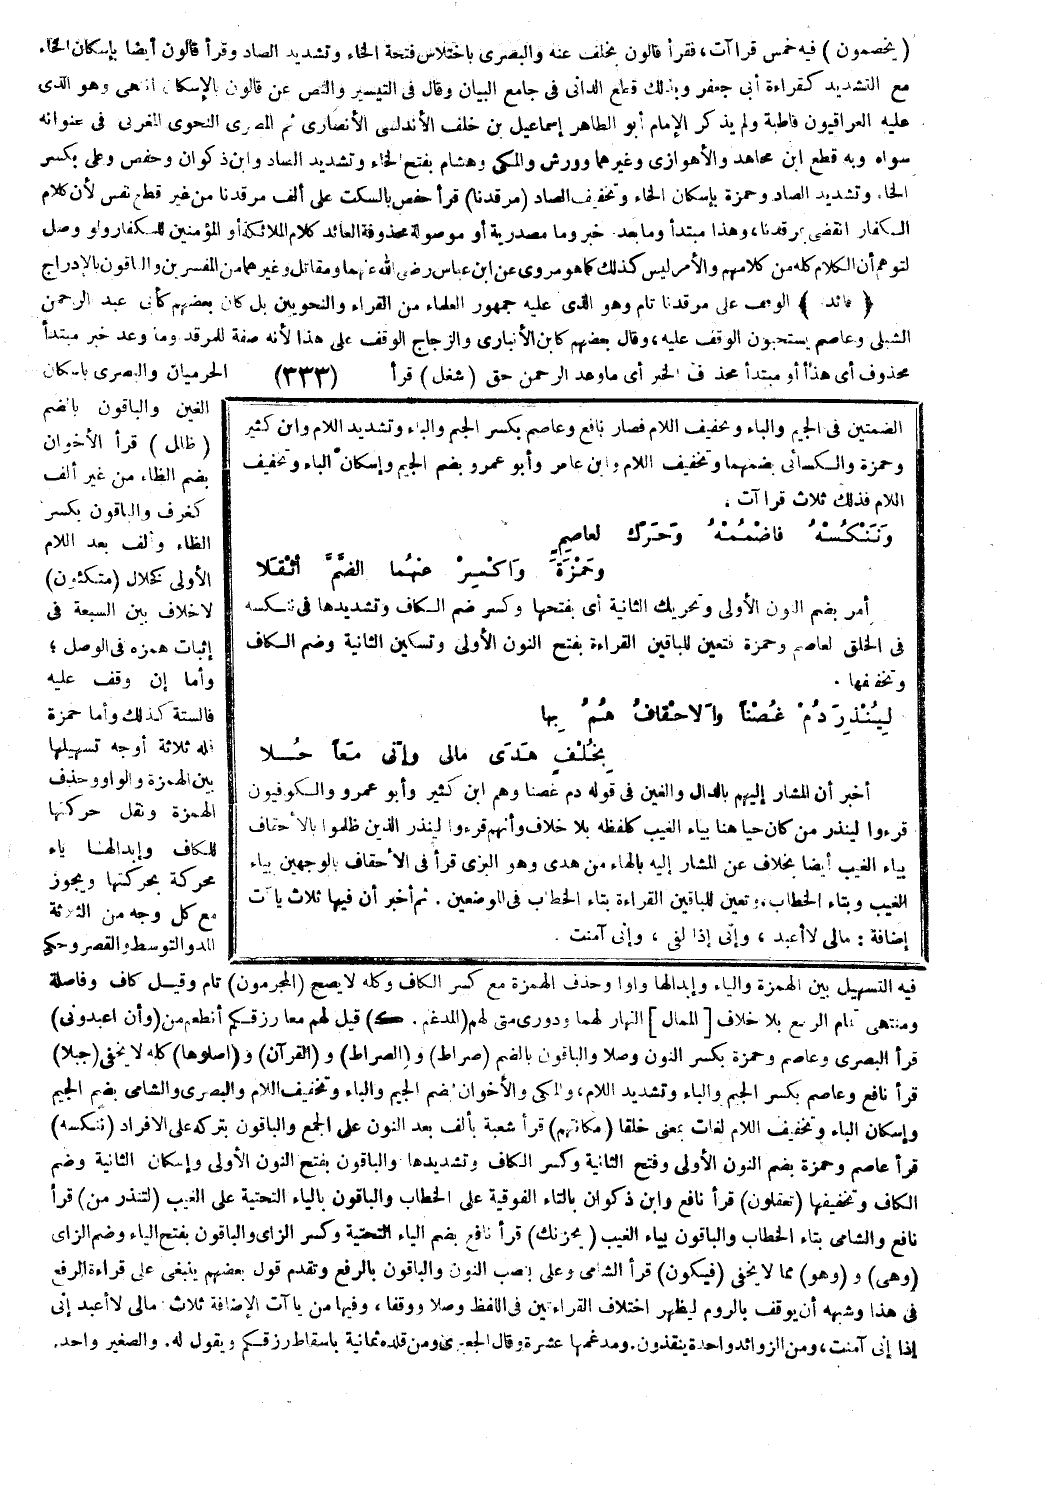 ( يخصمون ) فيه خمس قراآت، فقرأ قالون بخلف عنه والبصرى باختلاس فتحة الخاء وتشديد الصاد وقرأ قالون أيضا بإسكان الخاء
مع التشديد كقراءة أبى جعفر وبذلك قطع الدانى فى جامع البيان وقال فى التيسير والنص عن قالون بالإسكان انتهى وهو الذى
عليه العراقيون قاطبة ولم يذكر الإمام أبو الطاهر إسماعيل بن خلف الأندلسى الأنصارى ثم المصرى النحوى المغربى فى عنوانه
سواه وبه قطع ابن مجاهد والأهوازى وغيرهما وورش والمكى وهشام بفتح الخاء وتشديد الصاد وابن ذكوان وحفص وعلى بكسر
الخاء وتشديد الصاد وحمزة بإسكان الخاء وتخفيف الصاد (مرقدنا) قرأ حفص بالسكت على ألف مرقدنا من غير قطع نفس لأن كلام
الكفار انقضى بمرقدنا، وهذا مبتدأ وما بعد خبر وما مصدرية أو موصولة محذوفة العائد كلام الملائكة أو المؤمنين للكفار ولو وصل
لتوهم أن الكلام كله من كلامهم والأمر ليس كذلك كما هو مروى عن ابن عباس رضى الله عنهما ومقاتل وغيرهما من المفسرين والباقون بالإدراج
﴿ فائدة ﴾ الوقف على مرقدنا تام وهو الذى عليه جمهور العلماء من القراء والنحويين بل كان بعضهم كأبى عبد الرحمن
الشبلى وعاصم يستحبون الوقف عليه، وقال بعضهم كابن الأنبارى والزجاج الوقف على هذا لأنه صفة للمرقد وما وعد خبر مبتدأ
محذوف أى هذا أو مبتدأ محذوف الخبر أى ما وعد الرحمن حق (شغل) قرأ (٣٣٣) الحرميان والبصرى باسكان
الغين والباقون بالضم
( ظلل ) قرأ الأخوان
بضم الظاء من غير ألف
كغرف والباقون بكسر
الظاء وألف بعد اللام
الأولى كخلال (متكئون)
لاخلاف بين السبعة فى
إثبات همزه فى الوصل ؛
وأما إن وقف عليه
فالستة كذلك وأما حمزة
فله ثلاثة أوجه تسهيلها
بين الهمزة والواو وحذف
الهمزة ونقل حركتها
للكاف وإبدالها ياء
محركة بحركتها ويجوز
مع كل وجه من الثلاثة
المد والتوسط والقصر وحكى
الضمتين فى الجيم والباء وتخفيف اللام فصار نافع وعاصم بكسر الجيم والباء وتشديد اللام وابن كثير
وحمزة والكسائى بضمهما وتخفيف اللام وابن عامر وأبو عمرو بضم الجيم وإسكان الباء وتخفيف
اللام فذلك ثلاث قراآت .
وَنَنْكُسْهُ فاضْمُمْهُ وَحَرِّكْ لعاصِمٍ
وَحَمْزَةَ وَاكْسِرْ عنهُما الضَّمَّ أثْقَلا
أمر بضم النون الأولى وتحريك الثانية أى بفتحها وكسر ضم الكاف وتشديدها فى ننكسه
فى الخلق لعاصم وحمزة فتعين للباقين القراءة بفتح النون الأولى وتسكين الثانية وضم الكاف
وتخفيفها .
لِيُنْذِرَ دُمْ غُصْناً والاحْقافُ هُمْ بِها
بِخُلْفٍ هَدَى مالى وإنّى مَعاً حُلا
أخبر أن المشار إليهم بالدال والغين فى قوله دم غصنا وهم ابن كثير وأبو عمرو والكوفيون
قرءوا لينذر من كان حيا هنا بياء الغيب كلفظه بلا خلاف وأنهم قرءوا لينذر الذين ظلموا بالأحقاف
بياء الغيب أيضا بخلاف عن المشار إليه بالهاء من هدى وهو البزى قرأ فى الأحقاف بالوجهين بياء
الغيب وبتاء الخطاب، وتعين للباقين القراءة بتاء الخطاب فى الموضعين . ثم أخبر أن فيها ثلاث ياآت
إضافة : مالى لاأعبد ، وإنى إذا لفى ، وإنى آمنت .
فيه التسهيل بين الهمزة والياء وإبدالها واوا وحذف الهمزة مع كسر الكاف وكله لا يصح (المجرمون) تام وقيل كاف وفاصلة
ومنتهى تمام الربع بلا خلاف [الممال] النهار لهما ودورى متى لهم (المدغم . ك) قيل لهم مما رزقكم أنطعم من (وأن اعبدونى)
قرأ البصرى وعاصم وحمزة بكسر النون وصلا والباقون بالضم (صراط) و (الصراط) و (القرآن) و (اصلوها) كله لا يخفى (جبلا)
قرأ نافع وعاصم بكسر الجيم والباء وتشديد اللام، والمكى والأخوان بضم الجيم والباء وتخفيف اللام والبصرى والشامى بضم الجيم
وإسكان الباء وتخفيف اللام لغات بمعنى خلقا (مكانتهم) قرأ شعبة بألف بعد النون على الجمع والباقون بتركه على الافراد (ننكسه)
قرأ عاصم وحمزة بضم النون الأولى وفتح الثانية وكسر الكاف وتشديدها والباقون بفتح النون الأولى وإسكان الثانية وضم
الكاف وتخفيفها (تعقلون) قرأ نافع وابن ذكوان بالتاء الفوقية على الخطاب والباقون بالياء التحتية على الغيب (لتنذر من) قرأ
نافع والشامى بتاء الخطاب والباقون بياء الغيب (يحزنك) قرأ نافع بضم الياء التحتية وكسر الزاى والباقون بفتح الياء وضم الزاى
(وهى) و (وهو) مما لا يخفى (فيكون) قرأ الشامى وعلى بنصب النون والباقون بالرفع وتقدم قول بعضهم ينبغى على قراءة الرفع
فى هذا وشبهه أن يوقف بالروم ليظهر اختلاف القراءتين فى اللفظ وصلا ووقفا، وفيها من ياآت الإضافة ثلاث مالى لاأعبد إنى
إذا إنى آمنت، ومن الزوائد واحدة ينقذون. ومدغمها عشرة وقال الجعبرى ومن قلده ثمانية باسقاط رزقكم ويقول له. والصغير واحد.